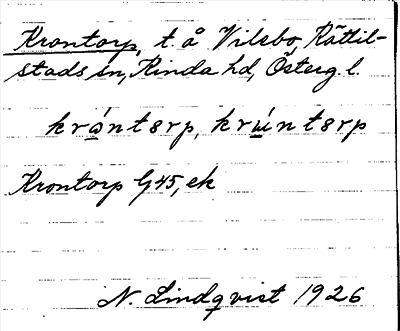 Krontorp, t. å Vilebo, Rättil-
stads sn, Kinda hd, Österg. l.
krọ́ntɘrp, krụ́ntɘrp
Krontorp G45, ek
N. Lindqvist 1926